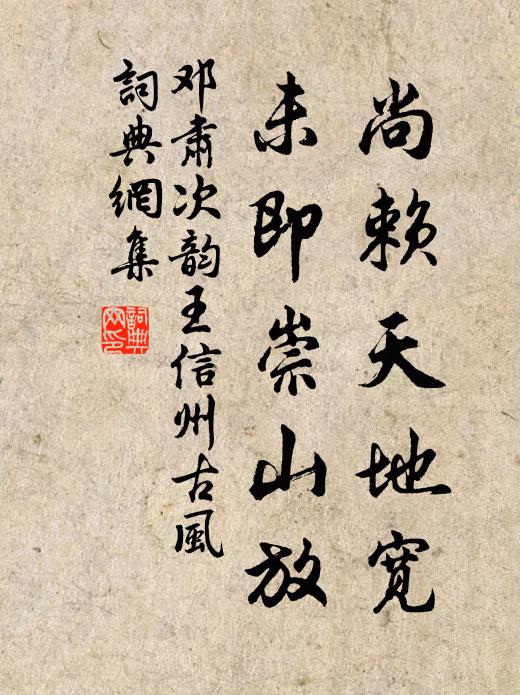 尚賴天地寬
未即崇山放
邓肅次韵王信州古風
詞典網集
詞典
网印